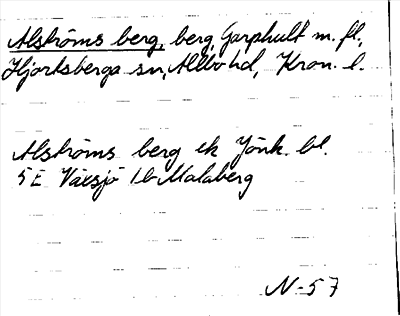 Alströms berg, berg, Garphult m. fl.,
Hjortsberga sn, Allbo hd, Kron. l.
Alströms berg ek Jönk. bl.
5 E Växsjö 1b Malaberg
N-57